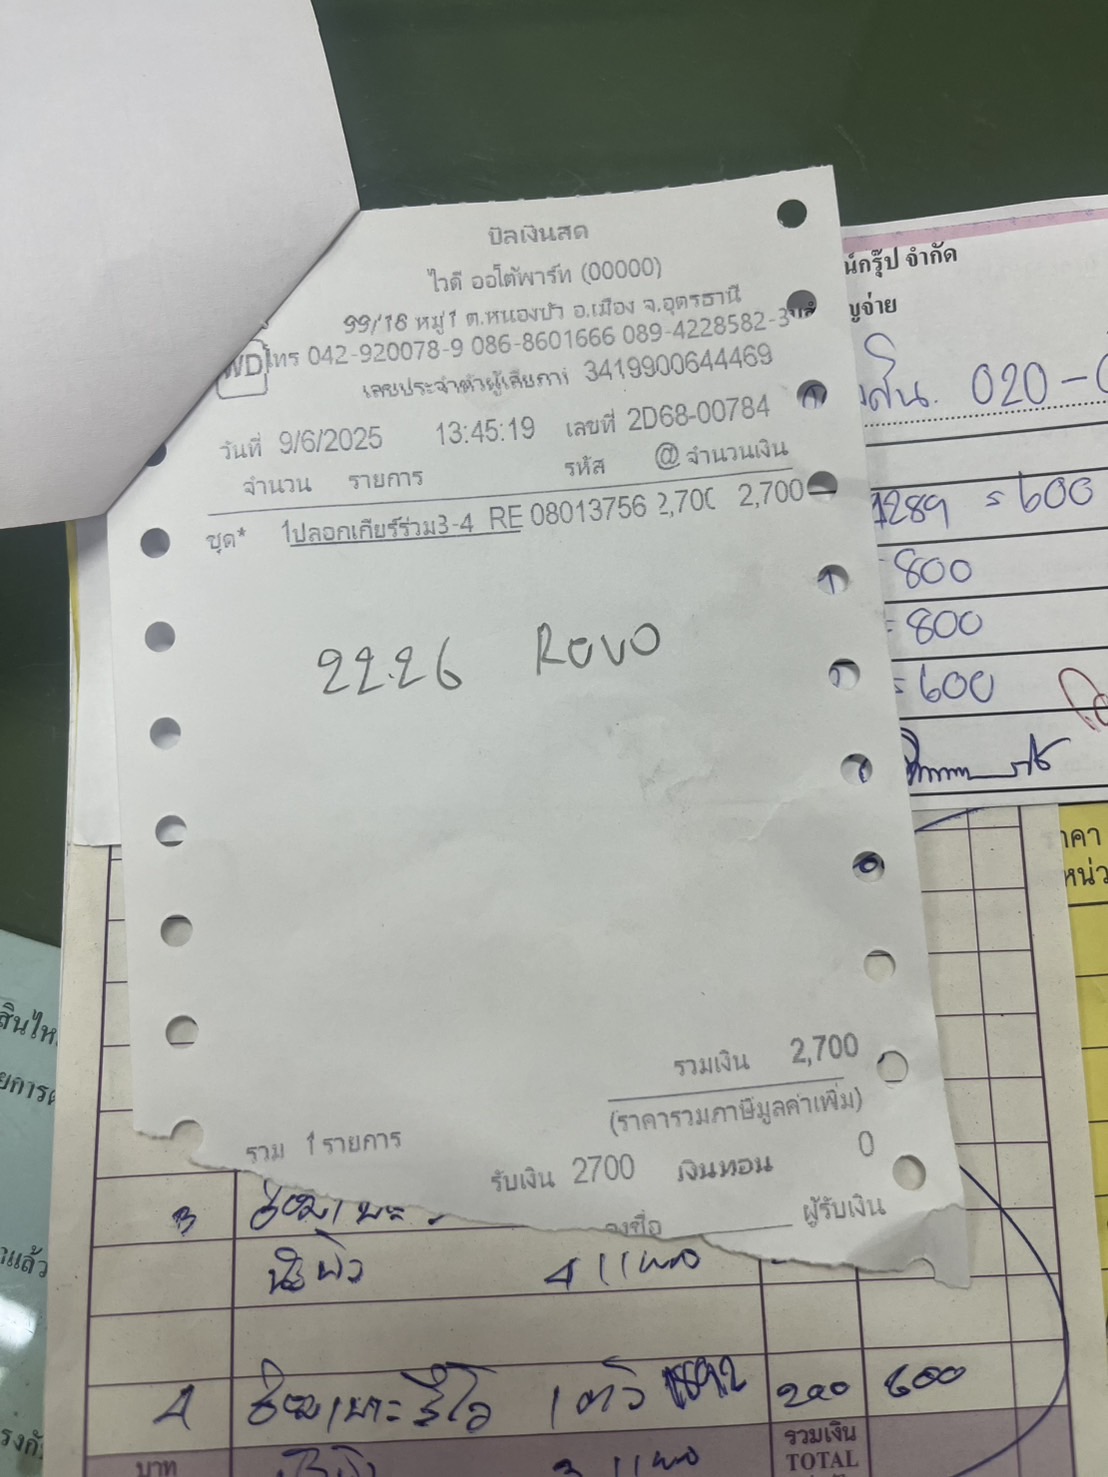 บิลเงินสด
ไวดี ออโต้พาร์ท (00000)
99/16 หมู่ 1 ต.หนองบัว อ.เมือง จ.อุดรธานี
WD โทร 042-920078-9 086-8601666 089-4228582-3
เลขประจำตัวผู้เสียภาษี 3419900644469
วันที่ 9/6/2025 13:45:19 เลขที่ 2D68-00784
จำนวน รายการ รหัส @ จำนวนเงิน
ชุด* 1ปลอกเกียร์ร่วม3-4 RE 08013756 2,700 2,700
22.26 Revo
รวมเงิน 2,700
(ราคารวมภาษีมูลค่าเพิ่ม)
รวม 1 รายการ
รับเงิน 2700 เงินทอน 0
ลงชื่อ ผู้รับเงิน
น์กรุ๊ป จำกัด
ผู้จ่าย
020-
1289 = 600
= 800
= 800
= 600
ราคา
หน่ว
สินไห
แล้ว
3
4
200 600
รวมเงิน
TOTAL
บาท